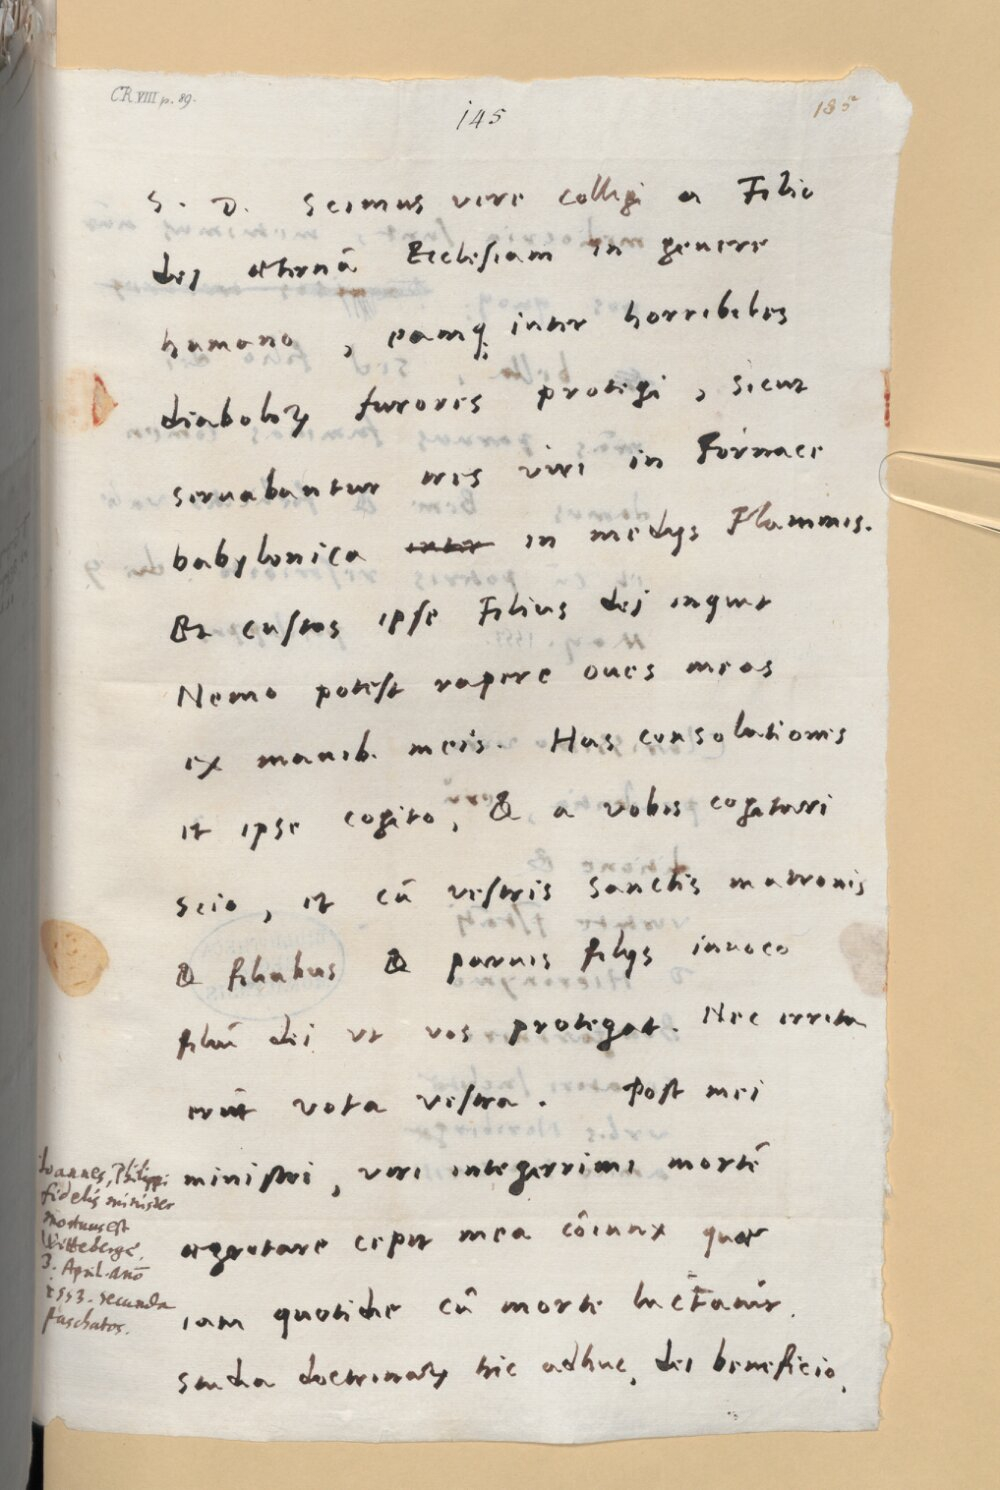 CR VIII p. 89.
145
185
S. D. Scimus vere colligi a Filio
dei æternã Ecclesiam in genere
humano, eamq; inter horribiles
diaboloꝝ furores protegi, sicut
seruabantur tres viri in Fornace
babylonica inter in medijs Flammis.
Et custos ipse Filius dei inquit
Nemo potest rapere oues meas
ex manib. meis. Has consolationes
et ipse cogito, & a vobis cogitari
scio, et cũ vestris sanctis matronis
& filiabus & paruis filijs inuoco
filiũ dei vt vos protegat. Nec irrita
erũt vota vestra. Post mei
ministri, viri integerrimi mortẽ
ægrotare cepit mea cõiunx quæ
iam quotidie cũ morte luctatur.
studia doctrinaꝝ hic adhuc, dei beneficio,
Ioannes, Philippi
fidelis minister
mortuus est
Wittebergę,
3. April. año
1553. secunda
paschatos.